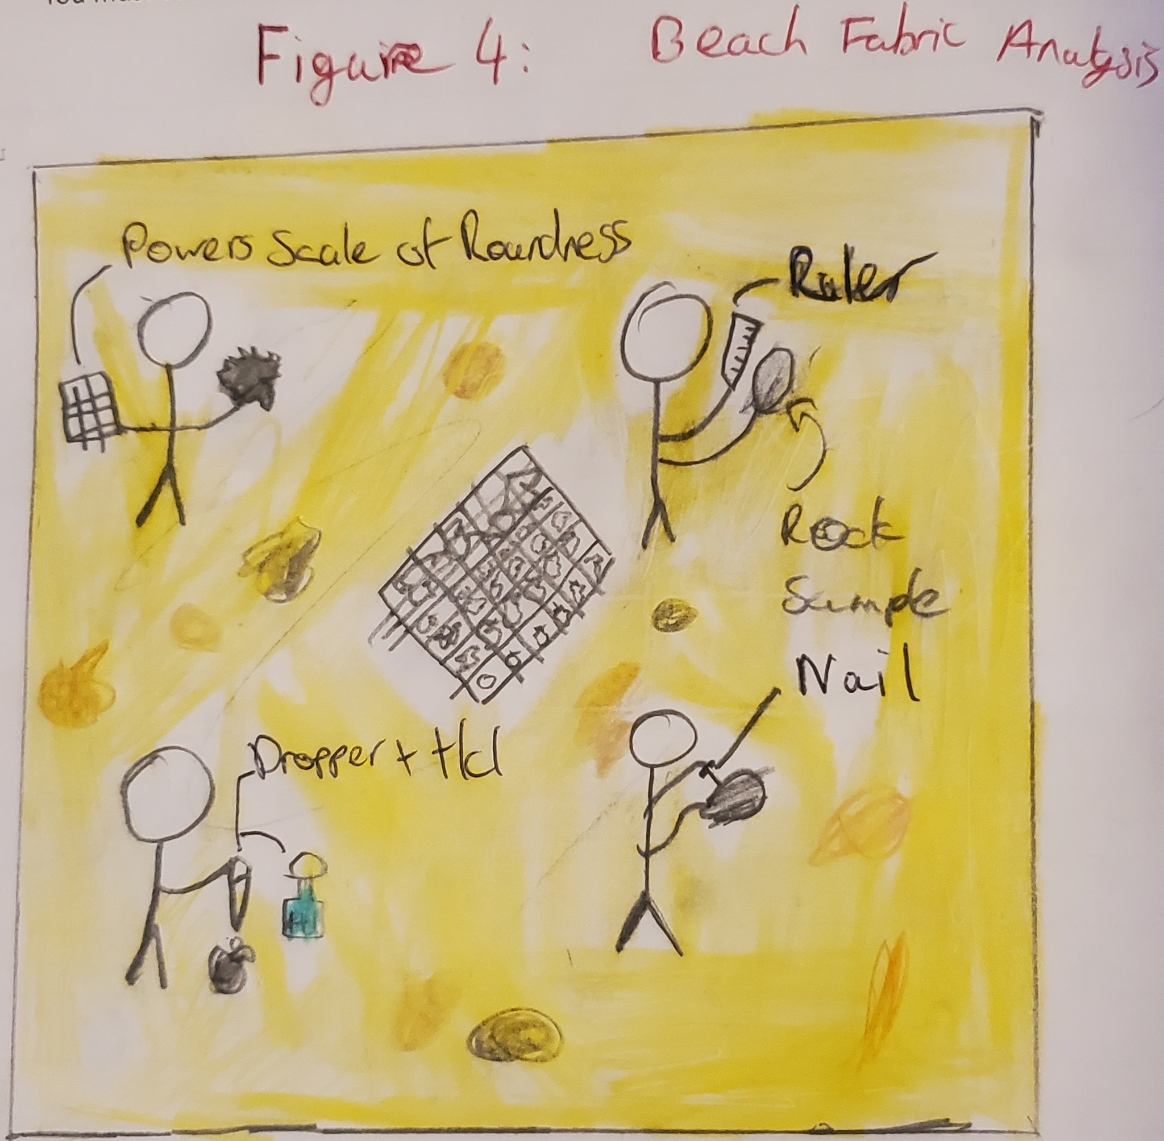 Figure 4: Beach Fabric Analysis
Powers Scale of Roundness
Ruler
Rock
Sample
Nail
Dropper + Hcl